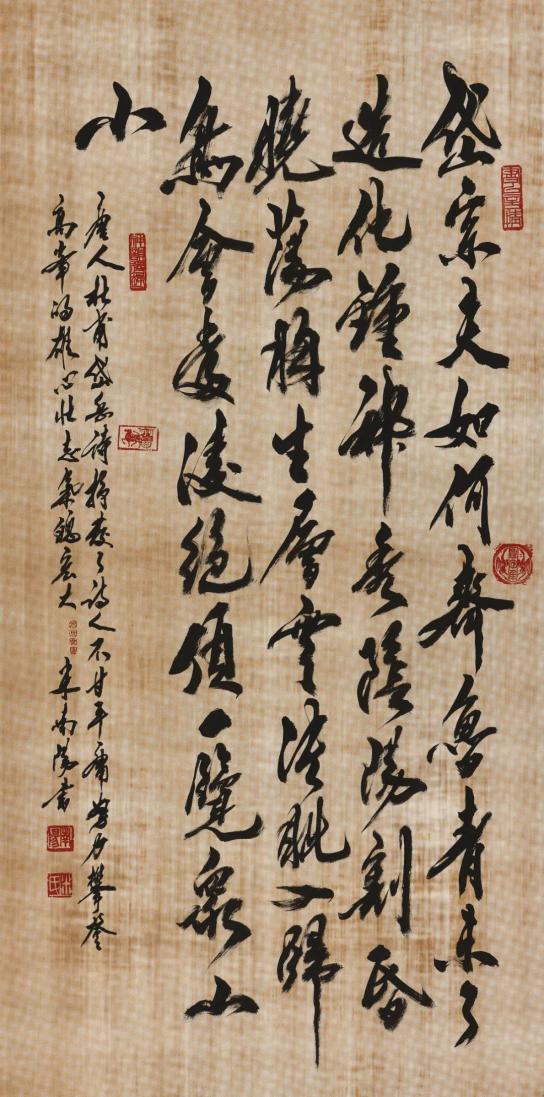 岱宗夫如何齊魯青未了
造化鍾神秀陰陽割昏
曉蕩胸生層雲決眥入歸
鳥會當凌絕頂一覽眾山
小
唐人杜甫岱岳詩抒發了詩人不甘平庸努力攀登
高峯的雄心壯志氣魄宏大 南陽書